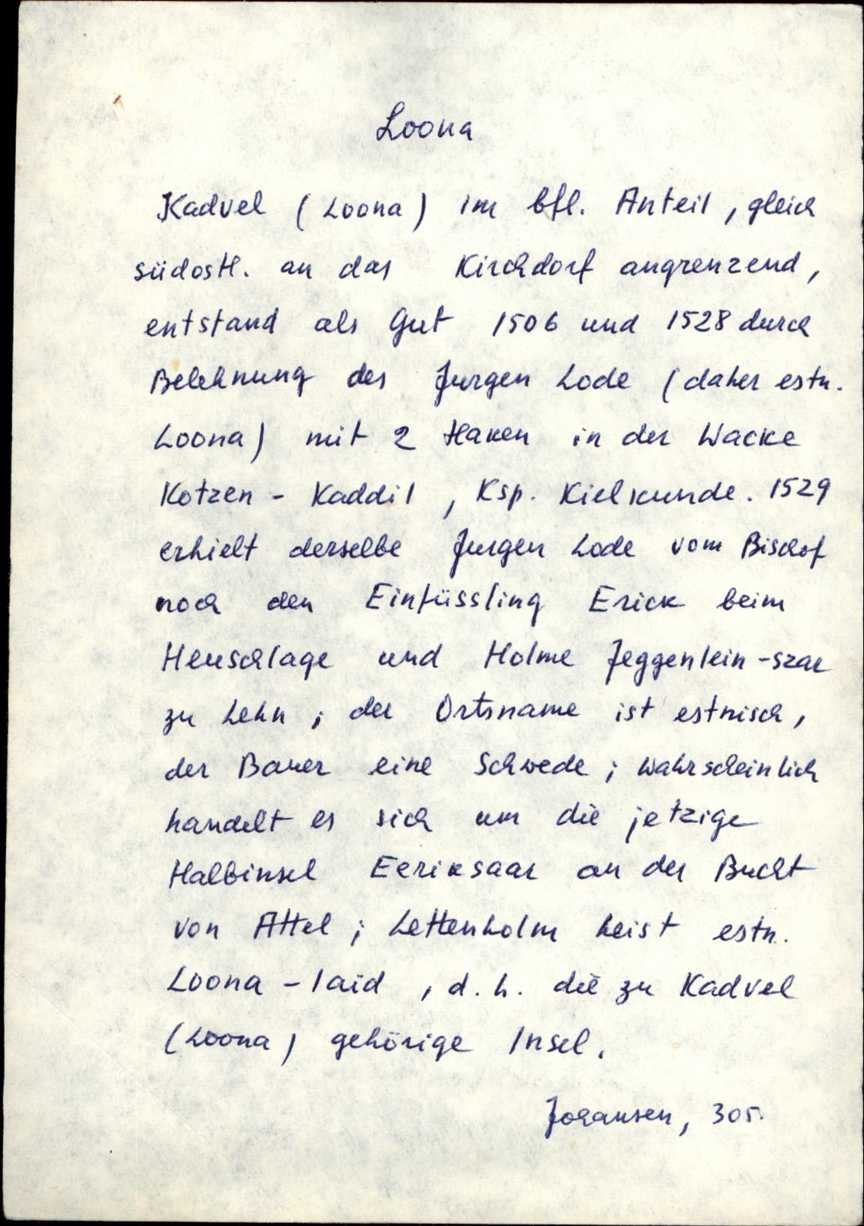 Loona
Kadvel (Loona) im bfl. Anteil, gleich
südostl. an das Kirchdorf angrenzend,
entstand als Gut 1506 und 1528 durch
Belehnung des Jurgen Lode (daher estn.
Loona) mit 2 Haken in der Wacke
Kotzen - Kaddil, Ksp. Kielkunde. 1529
erhielt derselbe Jurgen Lode vom Bischof
noch den Einfüssling Erick beim
Heuschlage und Holme Jeggenlein-szar
zu Lehn; der Ortsname ist estnisch,
der Bauer eine Schwede; wahrscheinlich
handelt es sich um die jetzige
Halbinsel Eeriksaar an der Bucht
von Attel; Lettenholm heist estn.
Loona - laid, d. h. die zu Kadvel
(Loona) gehörige Insel.
Johansen, 305.